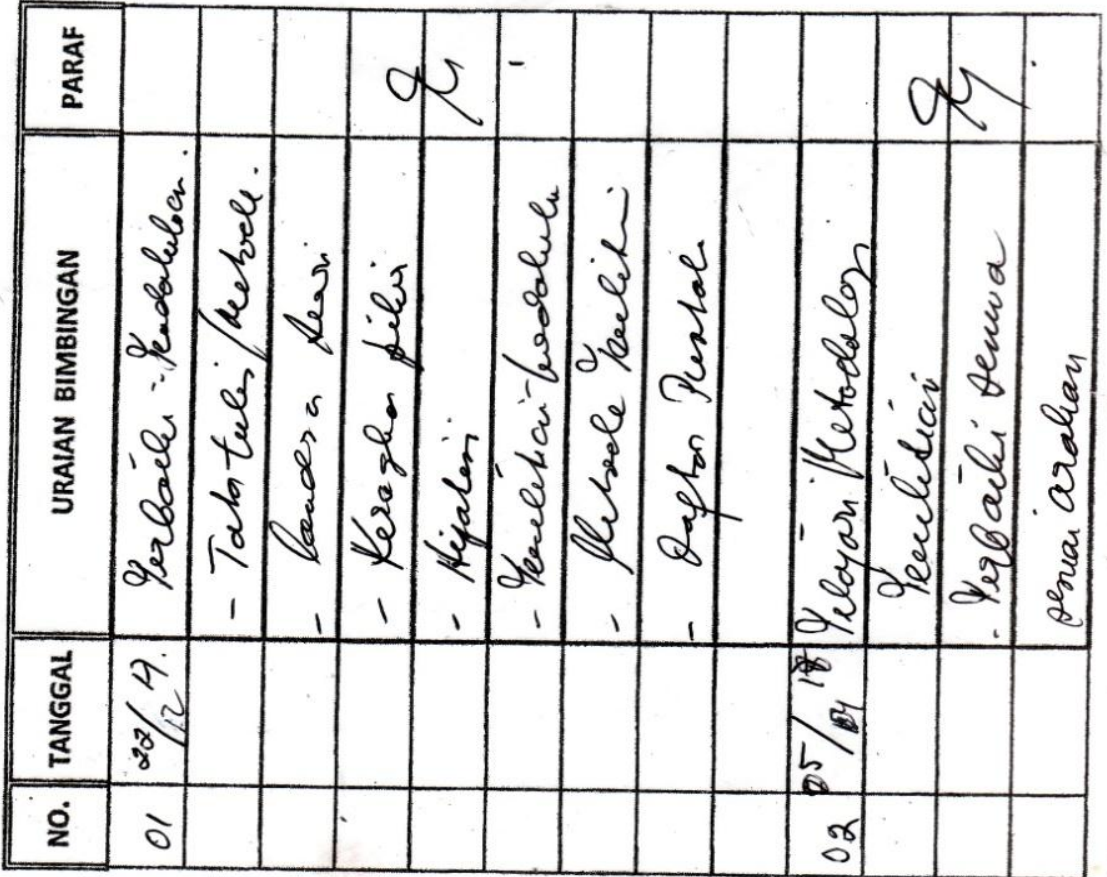 NO. TANGGAL URAIAN BIMBINGAN PARAF
01 22/12 17. Perbaiki - Pendahuluan.
- Tata tulis/metode.
- Landasan teori
- Kerangka pikir
- Hipotesis
- Penelitian terdahulu
- Metode Peneliti
- Daftar Pustak
02 05/01 18 Pelajari Metodologi
Penelitian
- Perbaiki semua
sesuai arahan